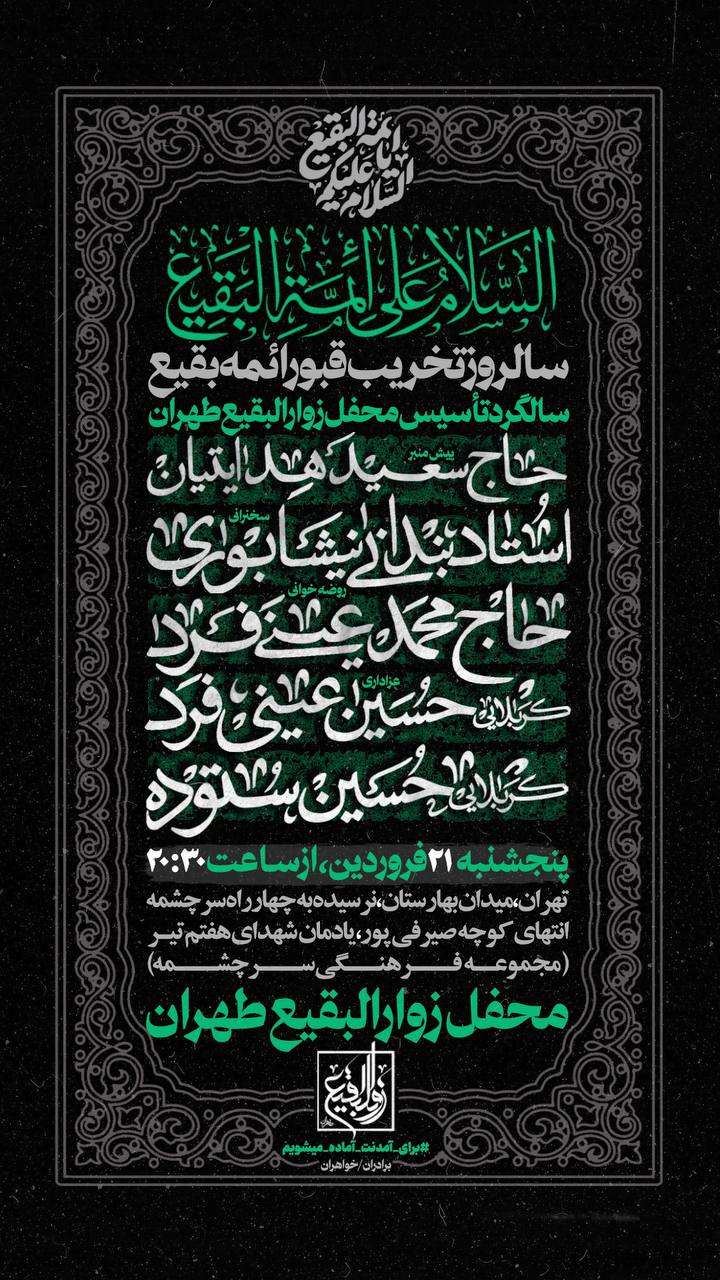 السلام علیکم یا ائمة البقیع
السَّلامُ عَلی أئِمَّةِ البَقِیع
سالروز تخریب قبور ائمه بقیع
سالگرد تأسیس محفل زوار البقیع طهران
پیش منبر
حاج سعید هدایتیان
سخنرانی
استاد بندانی نیشابوری
روضه خوانی
حاج محمد عینی فرد
عزاداری
کربلایی حسین عینی فرد
کربلایی حسین ستوده
پنجشنبه ۲۱ فروردین، از ساعت ۲۰:۳۰
تهران، میدان بهارستان، نرسیده به چهارراه سرچشمه
انتهای کوچه صیرفی پور، یادمان شهدای هفتم تیر
(مجموعه فرهنگی سرچشمه)
محفل زوار البقیع طهران
زوار البقیع
طهران
#برای_آمدنت_آماده_میشویم
برادران/خواهران